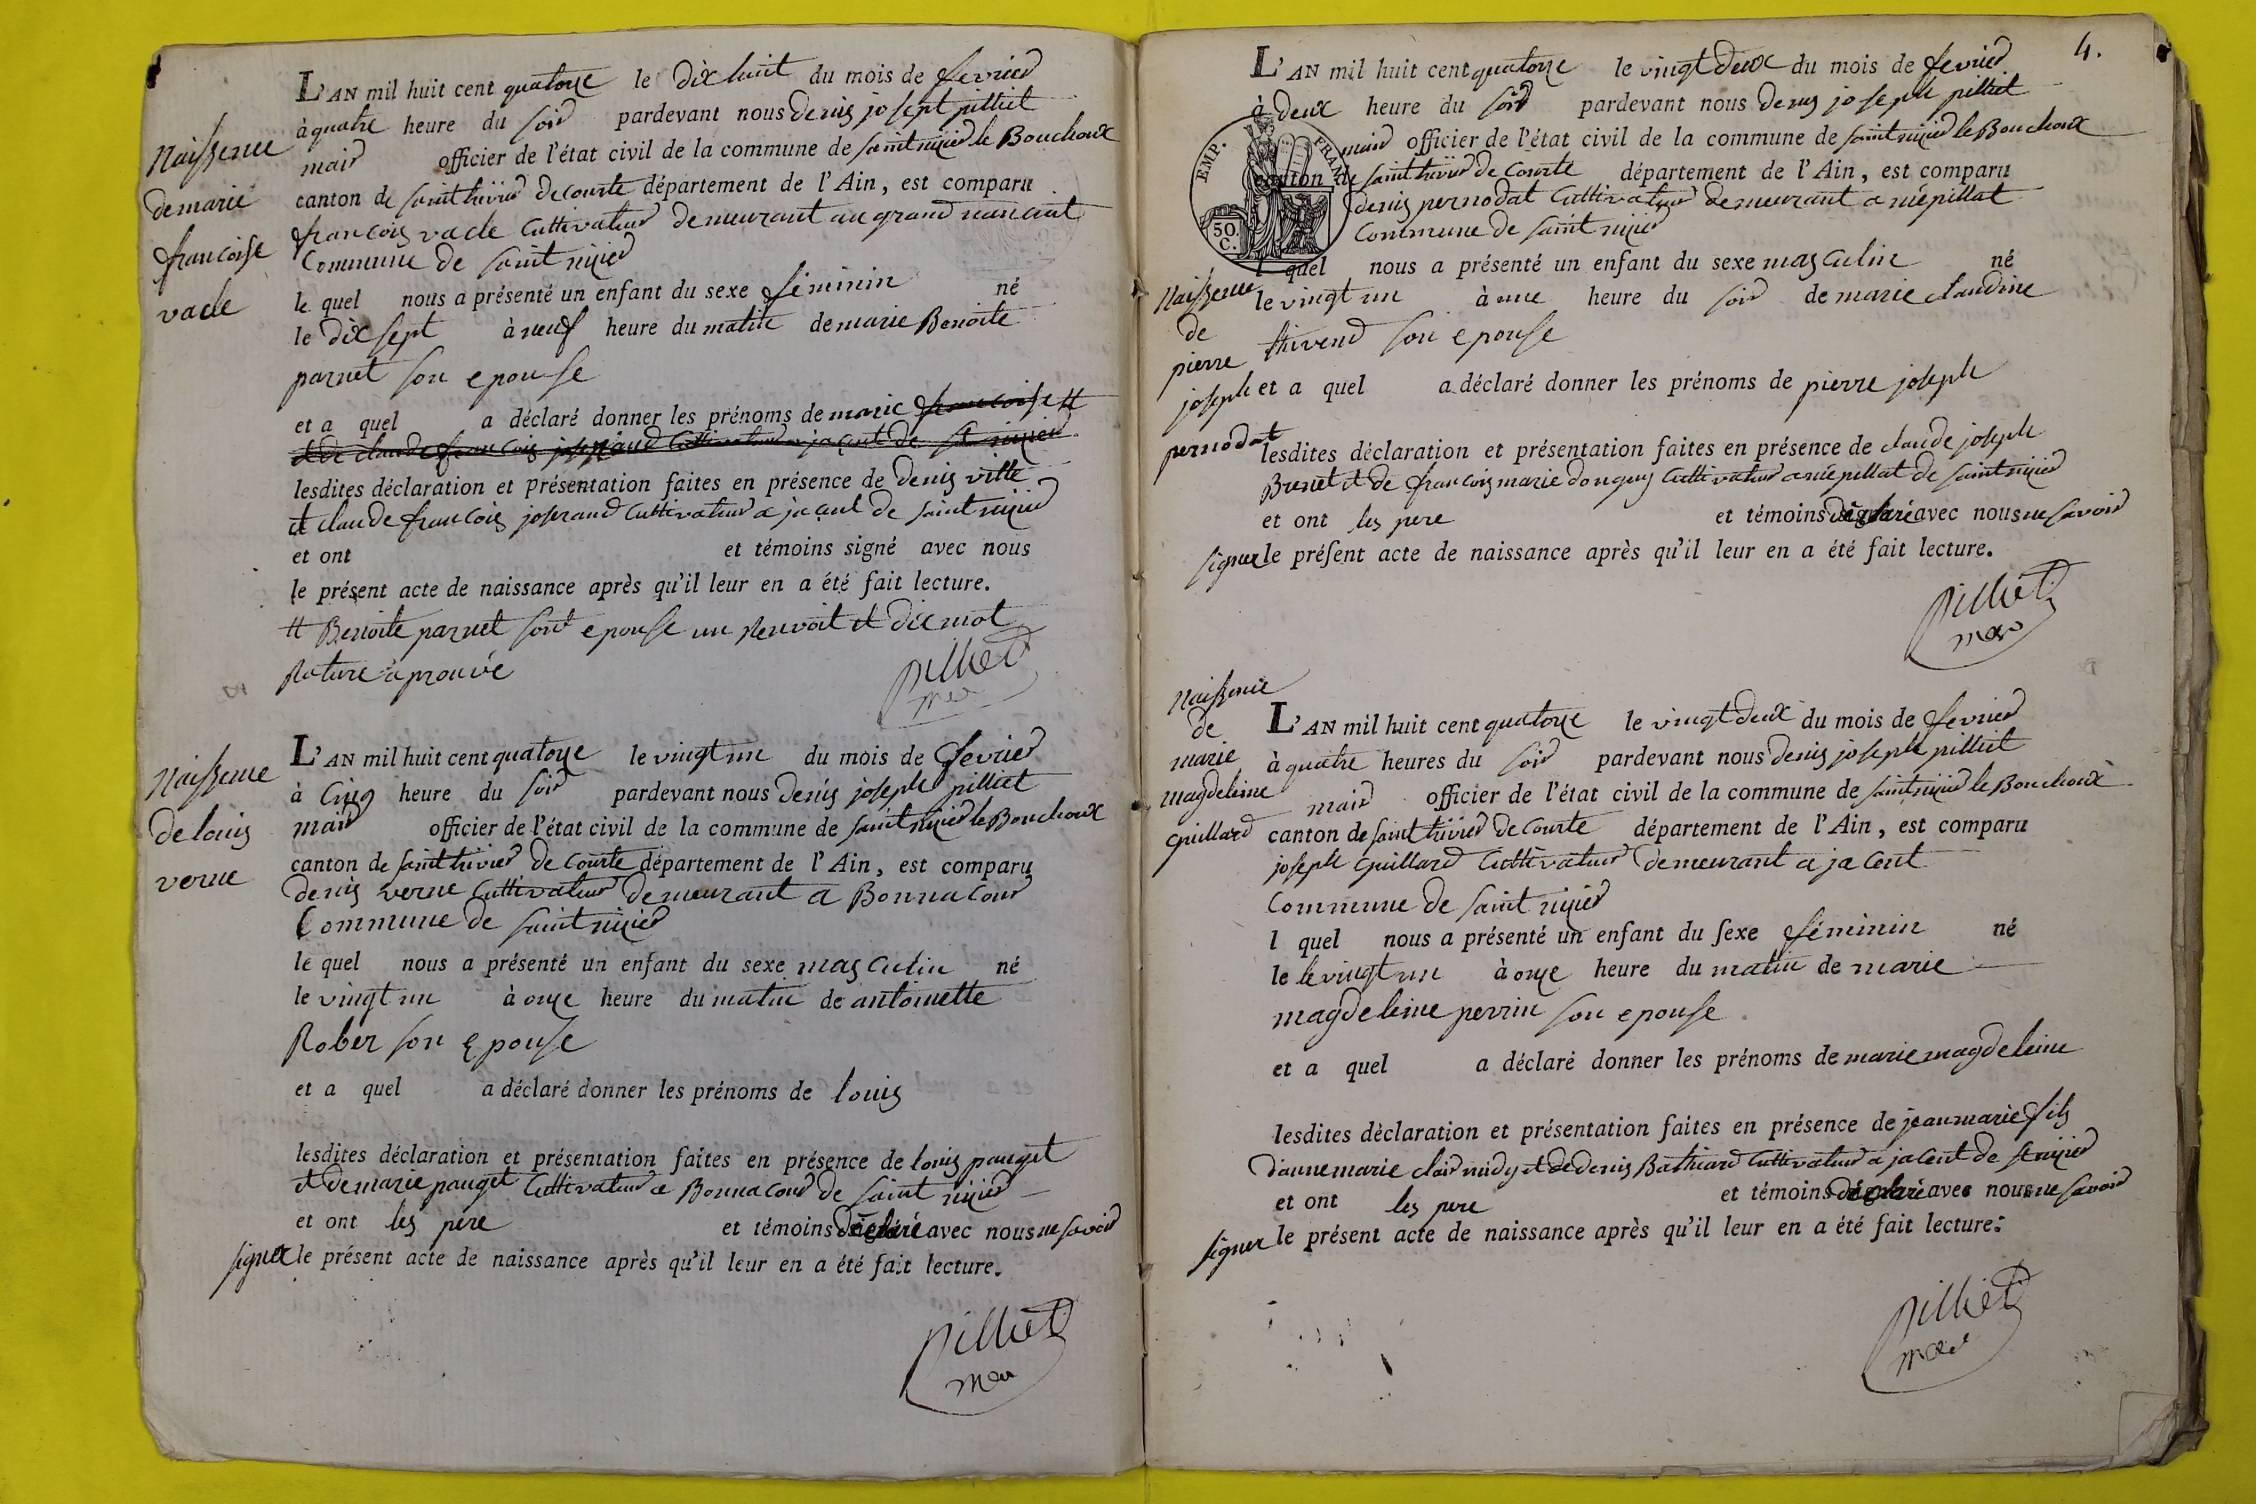 Naissence
de marie
francoise
vacle
L'AN mil huit cent quatorze le dix huit du mois de fevrier
à quatre heure du soir pardevant nous denis josept pilliet
mair officier de l'état civil de la commune de saint nizier le Bouchoux
canton de saint trivier de courte département de l'Ain, est comparu
francois vacle Cultivateur demeurant au grand nancent
Commune de saint nizier
le quel nous a présenté un enfant du sexe féminin né
le dix sept à neuf heure du matin de marie Benoite
parnet son epouse
et a quel a déclaré donner les prénoms de marie francoise #
et de claude francois joserand Cultivateur a jaçent de st nizier
lesdites déclaration et présentation faites en présence de denis ville
et claude francois joserand Cultivateur a jaçent de saint nizier
et ont et témoins signé avec nous
le présent acte de naissance après qu'il leur en a été fait lecture.
# Benoite parnet son epouse un Renvoit et dix mot
Rature aprouvé
pilliet
mair
Naissence
de louis
verne
L'AN mil huit cent quatorze le vingt un du mois de fevrier
à Cinq heure du soir pardevant nous denis joseph pilliet
mair officier de l'état civil de la commune de saint nizier le Bouchoux
canton de saint trivier de courte département de l'Ain, est comparu
denis verne Cultivateur demeurant a Bonna cour
Commune de saint nizier
le quel nous a présenté un enfant du sexe masculin né
le vingt un à onze heure du matin de antoinette
Rober son epouse
et a quel a déclaré donner les prénoms de louis
lesdites déclaration et présentation faites en présence de louis pauget
et de marie pauget Cultivateur a Bonna cour de saint nizier
et ont les pere et témoins déclaré avec nous ne savoir
signer le présent acte de naissance après qu'il leur en a été fait lecture.
pilliet
mair
4.
L'AN mil huit cent quatorze le vingt deux du mois de fevrier
à deux heure du soir pardevant nous denis joseph pilliet
mair officier de l'état civil de la commune de saint nizier le Bouchoux
canton de saint trivier de courte département de l'Ain, est comparu
denis pernodat Cultivateur demeurant a népillat
Commune de saint nizier
EMP. FRAN.
50. C.
l quel nous a présenté un enfant du sexe masculin né
Naissence
de
pierre
joseph
pernodat
le vingt un à une heure du soir de marie claudine
thivend son epouse
et a quel a déclaré donner les prénoms de pierre joseph
lesdites déclaration et présentation faites en présence de claude joseph
Brunet et de francois marie donguy Cultivateur a népillat de saint nizier
et ont les pere et témoins déclaré avec nous ne savoir
signer le présent acte de naissance après qu'il leur en a été fait lecture.
pilliet
mair
Naissence
de
marie
magdeleine
guillard
L'AN mil huit cent quatorze le vingt deux du mois de fevrier
à quatre heures du soir pardevant nous denis joseph pilliet
mair officier de l'état civil de la commune de saint nizier le Bouchoux
canton de saint trivier de courte département de l'Ain, est comparu
joseph guillard Cultivateur demeurant a jacent
Commune de saint nizier
l quel nous a présenté un enfant du sexe féminin né
le le vingt un à onze heure du matin de marie
magdeleine perrin son epouse
et a quel a déclaré donner les prénoms de marie magdeleine
lesdites déclaration et présentation faites en présence de jean marie fils
d'anne marie clair midy et de denis Bathiard Cultivateur a jacent de st nizier
et ont les pere et témoins déclaré avec nous ne savoir
signer le présent acte de naissance après qu'il leur en a été fait lecture.
pilliet
mair